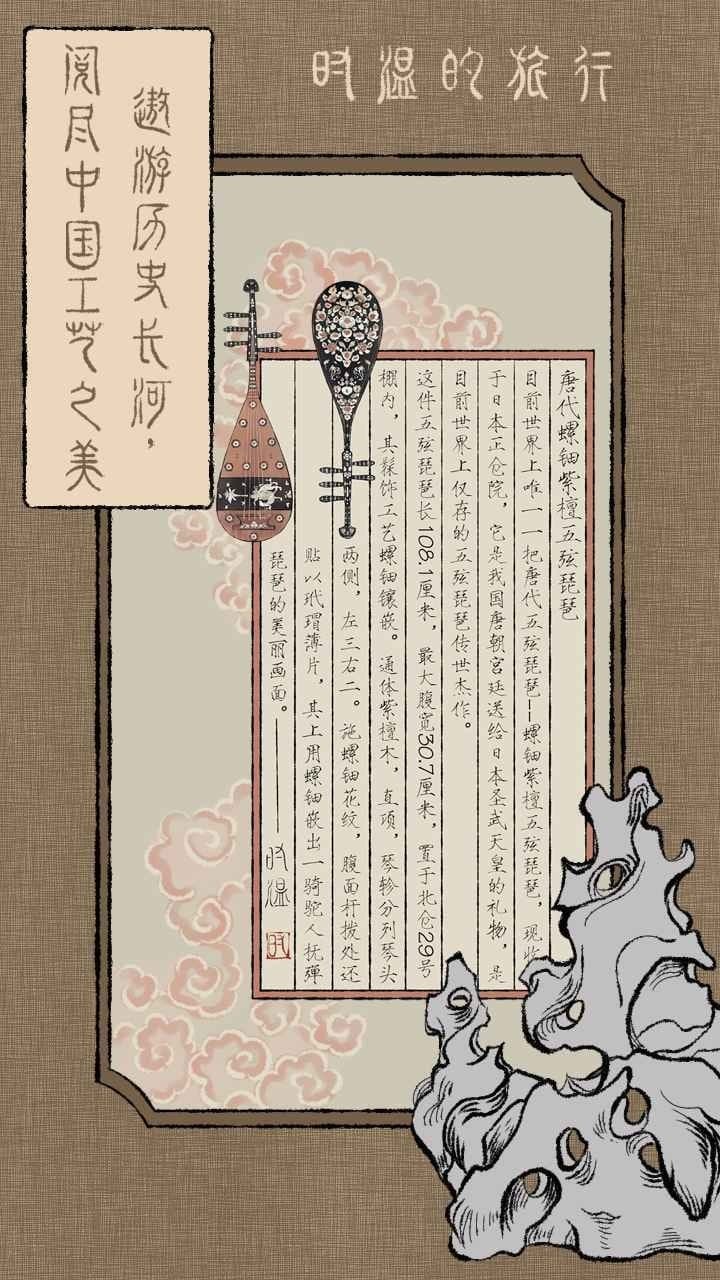 时温的旅行
遨游历史长河，
阅尽中国工艺之美
唐代螺钿紫檀五弦琵琶
目前世界上唯一一把唐代五弦琵琶--螺钿紫檀五弦琵琶，现收
于日本正仓院，它是我国唐朝宫廷送给日本圣武天皇的礼物，是
目前世界上仅存的五弦琵琶传世杰作。
这件五弦琵琶长108.1厘米，最大腹宽30.7厘米，置于北仓29号
棚内，其髹饰工艺螺钿镶嵌。通体紫檀木，直项，琴轸分列琴头
两侧，左三右二。施螺钿花纹，腹面杆拨处还
贴以玳瑁薄片，其上用螺钿嵌出一骑驼人抚弹
琵琶的美丽画面。——时温
时